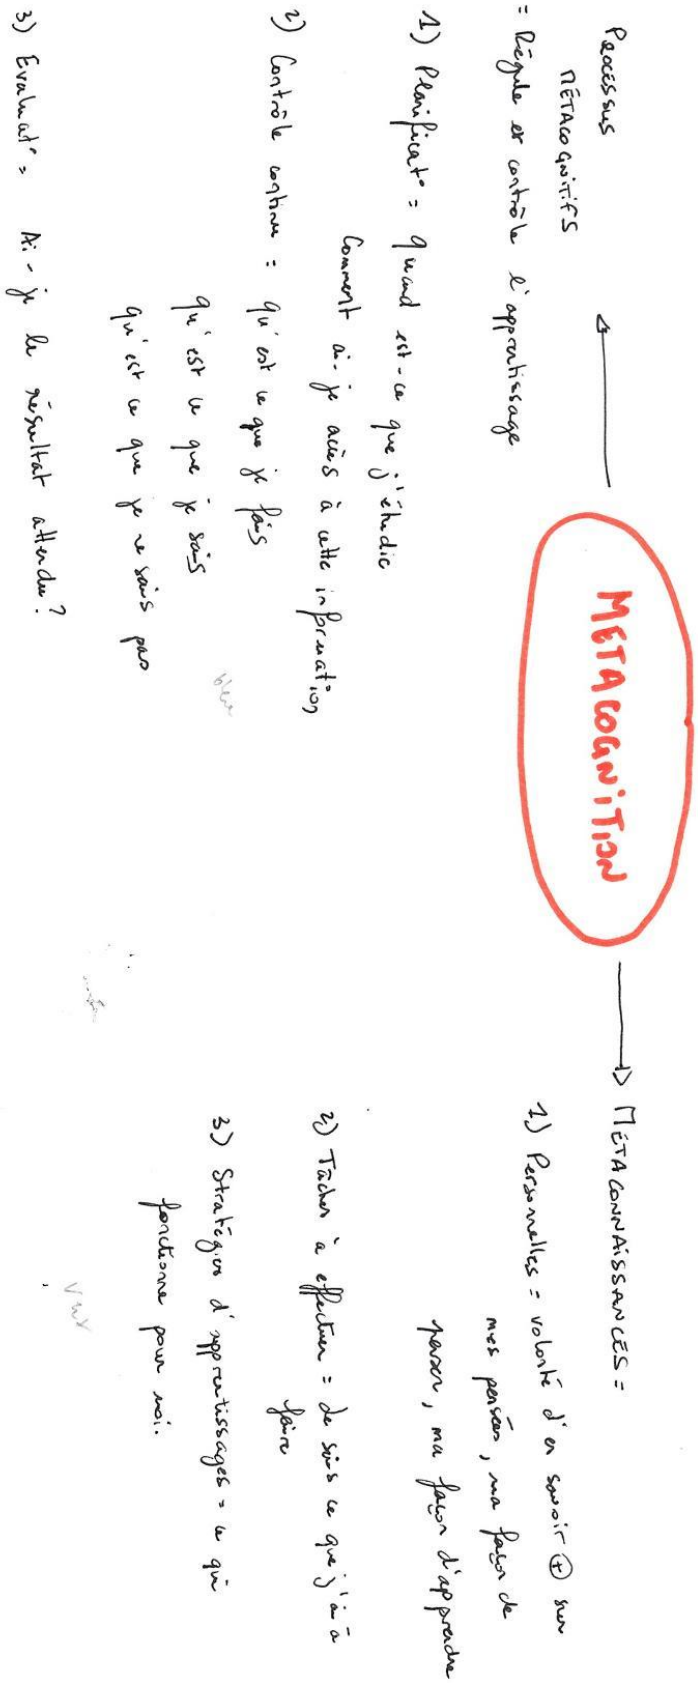 METACOGNITION
PROCESSUS
MÉTACOGNITIFS
= Régule et contrôle l'apprentissage
1) Planificat° = quand est-ce que j'étudie
Comment ai-je accès à cette information
2) Contrôle continu = qu'est ce que je fais
qu'est ce que je sais
qu'est ce que je ne sais pas
3) Evaluat° = Ai-je le résultat attendu ?
MÉTACONNAISSANCES =
1) Personnelles = volonté d'en savoir + sur
mes pensées, ma façon de
penser, ma façon d'apprendre
2) Tâches à effectuer = Je sais ce que j'ai à
faire
3) Stratégies d'apprentissages = ce qui
fonctionne pour moi.